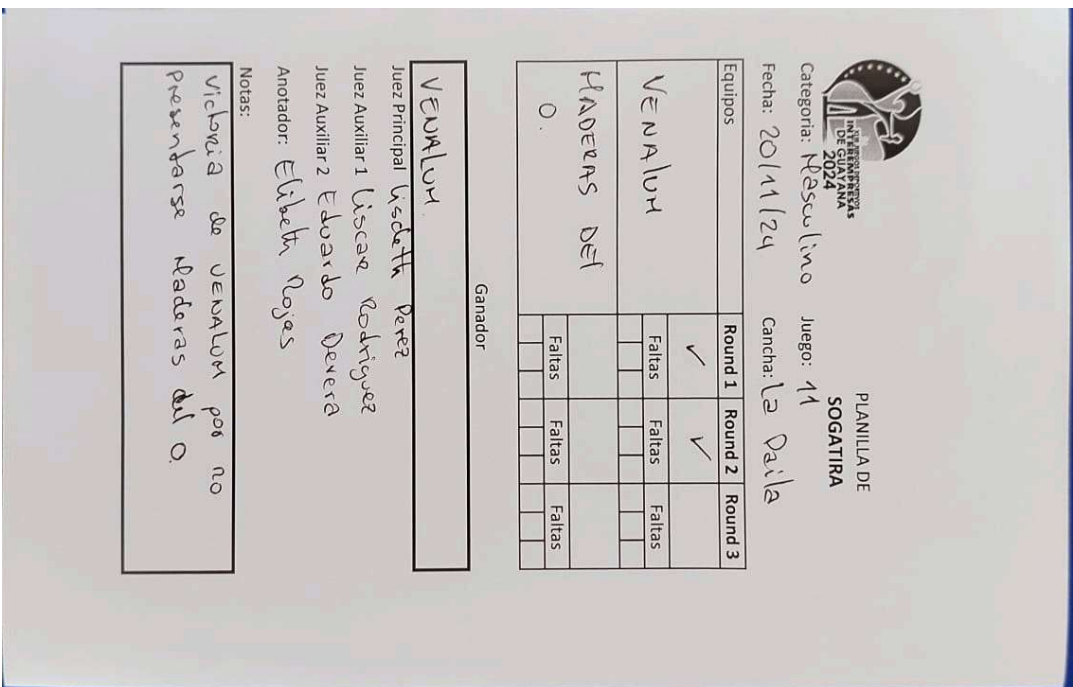 XIII JUEGOS DEPORTIVOS
INTEREMPRESAS
DE GUAYANA
2024
PLANILLA DE
SOGATIRA
Categoria: Masculino Juego: 11
Fecha: 20/11/24 Cancha: La Paila
Equipos Round 1 Round 2 Round 3
VENALUM ✓ ✓
Faltas Faltas Faltas
MADERAS DEl
O.
Faltas Faltas Faltas
Ganador
VENALUM.
Juez Principal Lisdeth Perez
Juez Auxiliar 1 Liscar Rodriguez
Juez Auxiliar 2 Eduardo Devera
Anotador: Elibeth Rojas
Notas:
Victoria de VENALUM por no
presentarse Maderas del O.